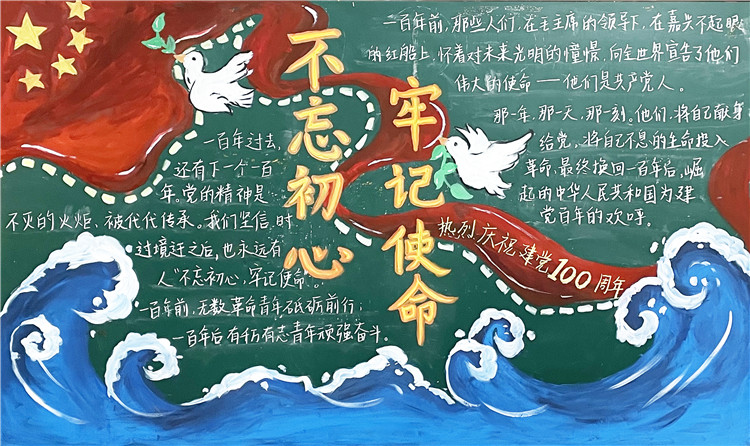 不忘初心
牢记使命
一百年前,那些人们,在毛主席的领导下,在嘉兴不起眼
的红船上,怀着对未来光明的憧憬,向全世界宣告了他们
伟大的使命——他们是共产党人。
那一年,那一天,那一刻。他们,将自己献身
给党,将自己不息的生命投入
革命,最终换回一百年后,崛
起的中华人民共和国为建
党百年的欢呼。
热烈庆祝建党100周年
一百年过去,
还有下一个一百
年。党的精神是
不灭的火炬,被代代传承。我们坚信,时
过境迁之后,也永远有
人“不忘初心,牢记使命”。
一百年前,无数革命青年砥砺前行;
一百年后有千万有志青年顽强奋斗。